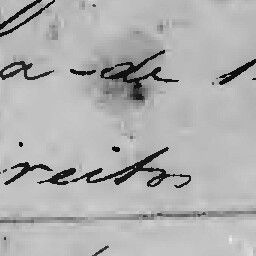 a-de
reitos